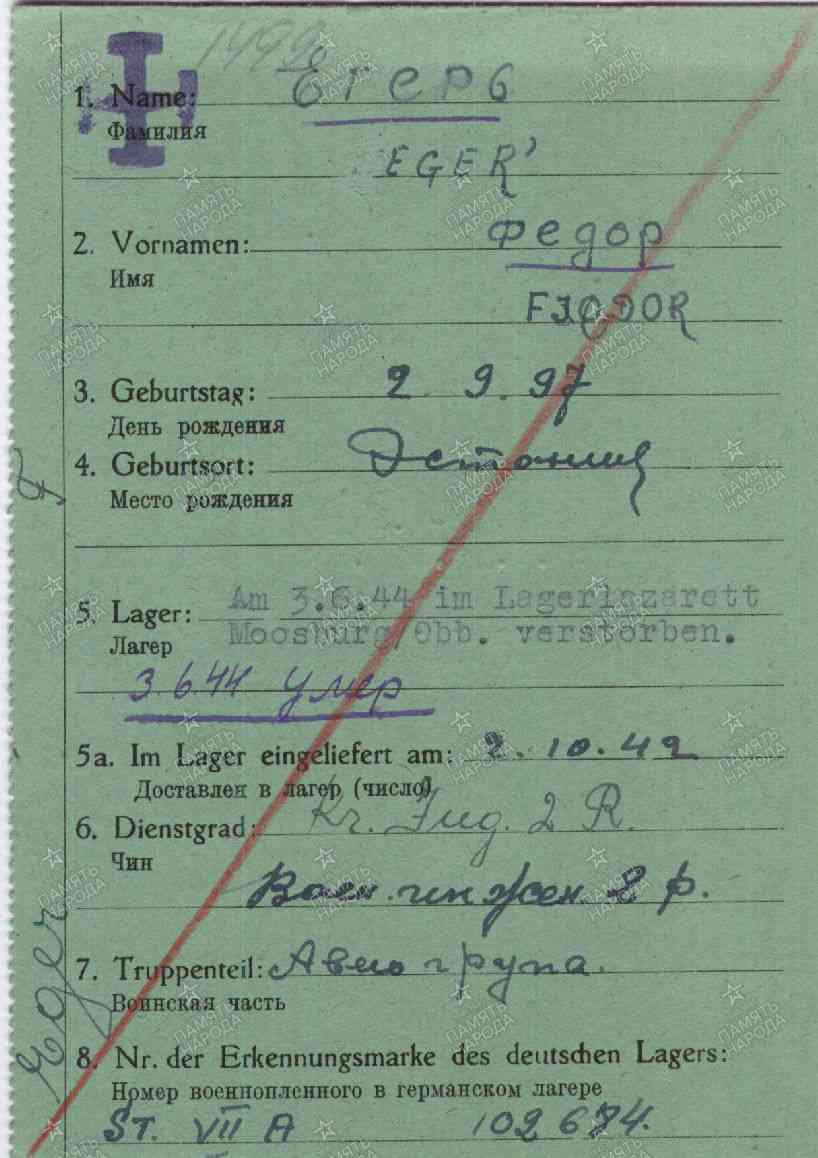 1499
1. Name: Егерь
Фамилия
EGER'
2. Vornamen: Федор
Имя
FJODOR
3. Geburtstag: 2. 9. 97
День рождения
4. Geburtsort: Эстония
Место рождения
5. Lager: Am 3.6.44 im Lagerlazarett
Лагер Moosburg/Obb. verstorben.
3 6 44 умер
5a. Im Lager eingeliefert am: 2. 10. 42
Доставлен в лагер (число)
6. Dienstgrad: Kr. Ing. 2 R.
Чин
Воен. инжен 2 р.
7. Truppenteil: Авиогрупа.
Воинская часть
Eger F
8. Nr. der Erkennungsmarke des deutschen Lagers:
Номер военнопленного в германском лагере
ST. VII A 102674.
ПАМЯТЬ
НАРОДА